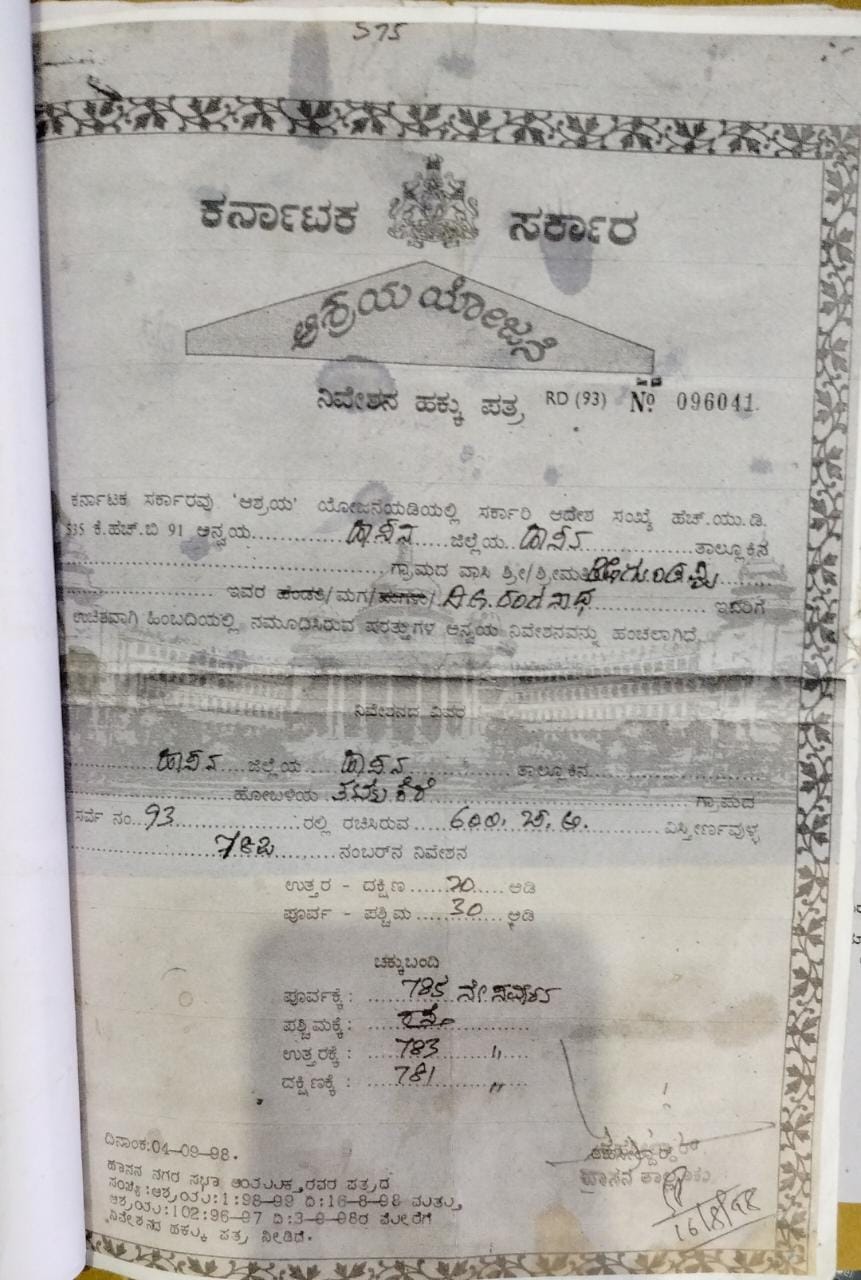 575
ಕರ್ನಾಟಕ ಸರ್ಕಾರ
ಆಶ್ರಯ ಯೋಜನೆ
ನಿವೇಶನ ಹಕ್ಕು ಪತ್ರ RD (93) No 096041
ಕರ್ನಾಟಕ ಸರ್ಕಾರವು 'ಆಶ್ರಯ' ಯೋಜನೆಯಡಿಯಲ್ಲಿ ಸರ್ಕಾರಿ ಆದೇಶ ಸಂಖ್ಯೆ ಹೆಚ್.ಯು.ಡಿ.
535 ಕೆ.ಹೆಚ್.ಬಿ 91 ಅನ್ವಯ ಹಾಸನ ಜಿಲ್ಲೆಯ ಹಾಸನ ತಾಲ್ಲೂಕಿನ
ಗ್ರಾಮದ ವಾಸಿ ಶ್ರೀ/ಶ್ರೀಮತಿ
ಇವರ ಹೆಂಡತಿ/ಮಗ/ಮಗಳು/ ರಂಗನಾಥ ಇವರಿಗೆ
ಉಚಿತವಾಗಿ ಹಿಂಬದಿಯಲ್ಲಿ ನಮೂದಿಸಿರುವ ಷರತ್ತುಗಳ ಅನ್ವಯ ನಿವೇಶನವನ್ನು ಹಂಚಲಾಗಿದೆ.
ನಿವೇಶನದ ವಿವರ
ಹಾಸನ ಜಿಲ್ಲೆಯ ಹಾಸನ ತಾಲ್ಲೂಕಿನ
ಹೋಬಳಿಯ ಗ್ರಾಮದ
ಸರ್ವೆ ನಂ. 93 ರಲ್ಲಿ ರಚಿಸಿರುವ 600 ಚ.ಅ. ವಿಸ್ತೀರ್ಣವುಳ್ಳ
782 ನಂಬರ್‌ನ ನಿವೇಶನ
ಉತ್ತರ - ದಕ್ಷಿಣ 20 ಅಡಿ
ಪೂರ್ವ - ಪಶ್ಚಿಮ 30 ಅಡಿ
ಚಕ್ಕುಬಂದಿ
ಪೂರ್ವಕ್ಕೆ : 785 ನೇ
ಪಶ್ಚಿಮಕ್ಕೆ : ರಸ್ತೆ
ಉತ್ತರಕ್ಕೆ : 783 "
ದಕ್ಷಿಣಕ್ಕೆ : 781 "
ದಿನಾಂಕ:04-09-98.
ತಹಸೀಲ್ದಾರ್
ಹಾಸನ ತಾಲ್ಲೂಕು
ಹಾಸನ ನಗರ ಸಭಾ ಆಯುಕ್ತರವರ ಪತ್ರದ
ಸಂಖ್ಯೆ:ಆಶ್ರಯ:1:98-99 ದಿ:16-8-98 ಮತ್ತು
ಆಶ್ರಯ:102:96-97 ದಿ:3-9-98ರ ಮೇರೆಗೆ
ನಿವೇಶನದ ಹಕ್ಕು ಪತ್ರ ನೀಡಿದೆ.
16/8/98